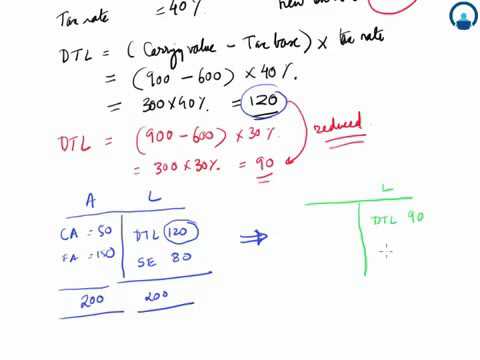 Tax rate = 40%
new
DTL = (Carrying value - Tax base) × tax rate
= (900 - 600) × 40%.
= 300×40%. = 120
DTL = (900 - 600) × 30%. reduced
= 300×30%. = 90
A L
CA = 50 DTL 120
FA = 150 SE 80
200 200
⇒
L
DTL 90